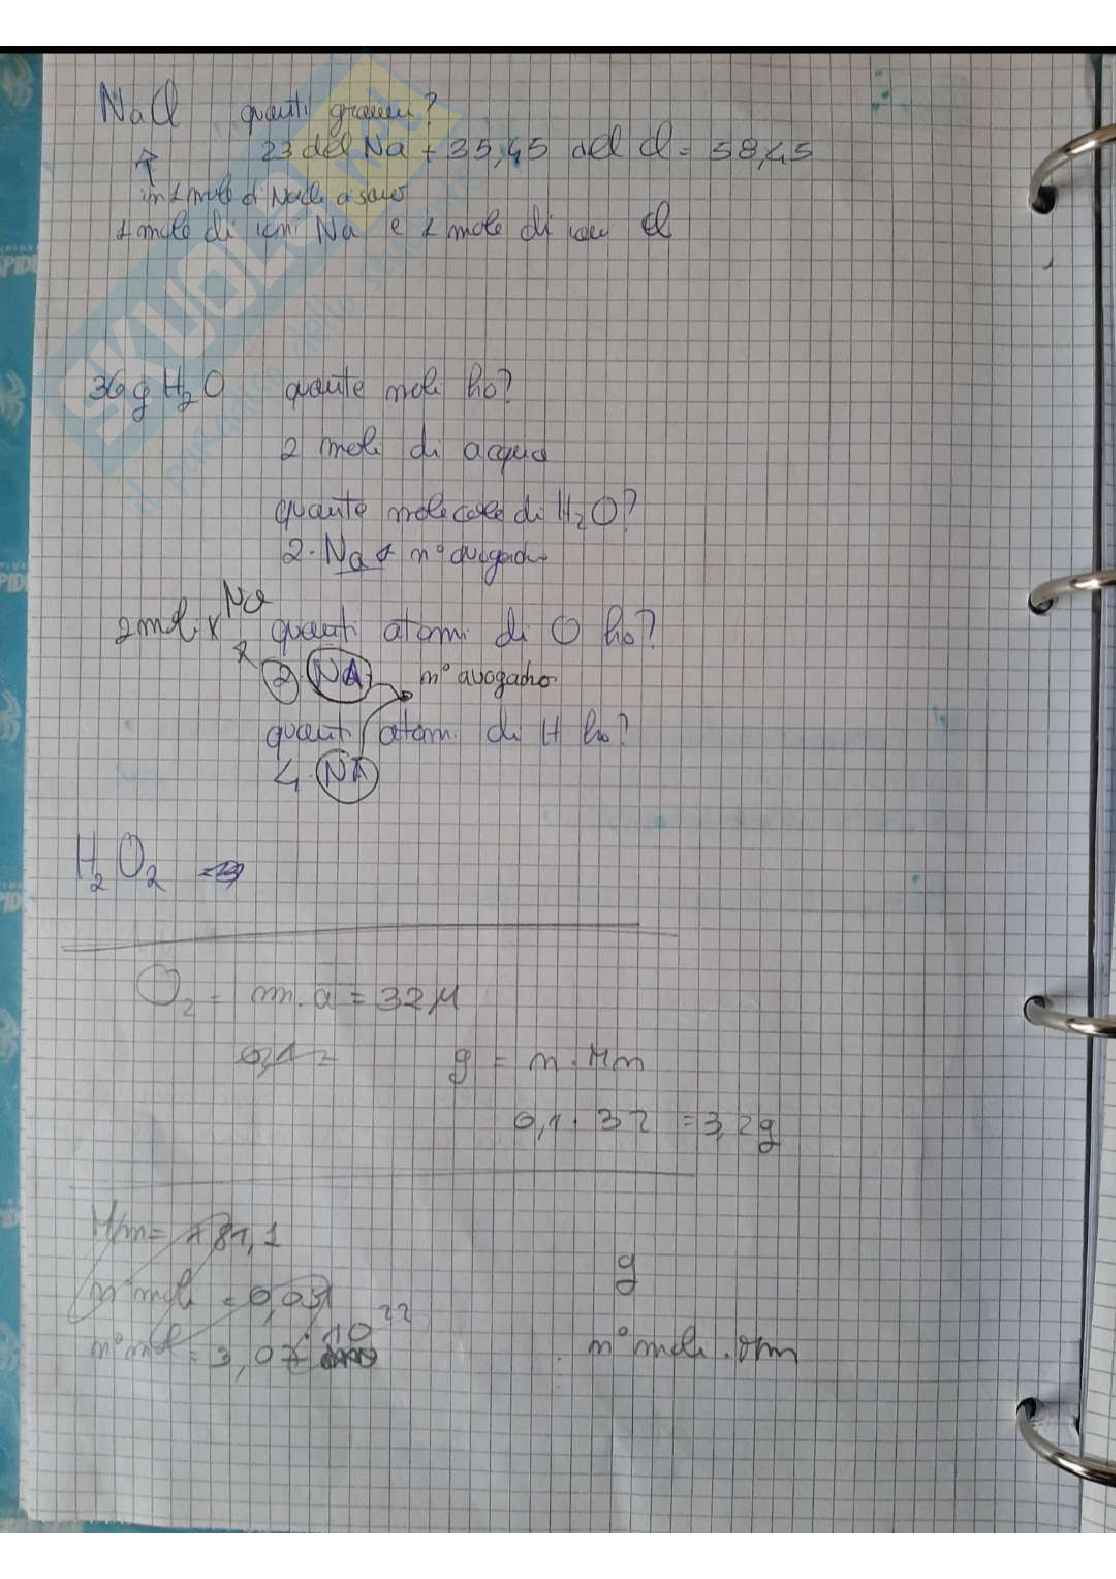 NaCl quanti grammi?
23 del Na + 35,45 del Cl = 58,45
in 1 mole di NaCl ci sono
1 mole di ioni Na e 1 mole di ioni Cl
36g H₂O quante moli ho?
2 moli di acqua
quante molecole di H₂O?
2·Na n° avogadro
2mol x Na quanti atomi di O ho?
2 NA n° avogadro
quanti atomi di H ho?
4 NA
H₂O₂ =
O₂ - m.a = 32 M
0,1 = g = n·Mm
0,1 · 32 = 3,2g
Mm = 181,1
g
n° moli = 0,051
n° mol = 3,07 10²²
n° moli .
SKUOLA